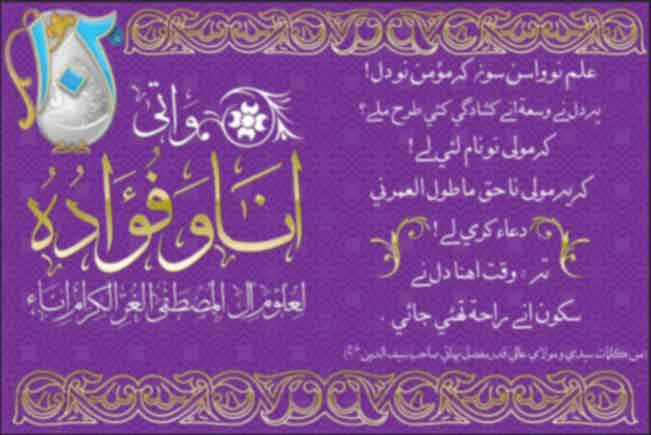 ١٠٢
مواتي
اناء وفؤاده
لعلوم آل المصطفى الغر الكرام اناء
علم نو واسن سوز كر مؤمن نو دل!
يه دل نے وسعة انے كشادگي كئي طرح ملے؟
كر مولى نو نام لئي لے!
كر يه مولى نا حق ما طول العمر ني
دعاء كري لے!
تر : وقت اهنا دل نے
سكون انے راحة تهئي جائي .
(من كلمات سيدي ومولاي عالي قدر مفضل بهائي صاحب سيف الدين